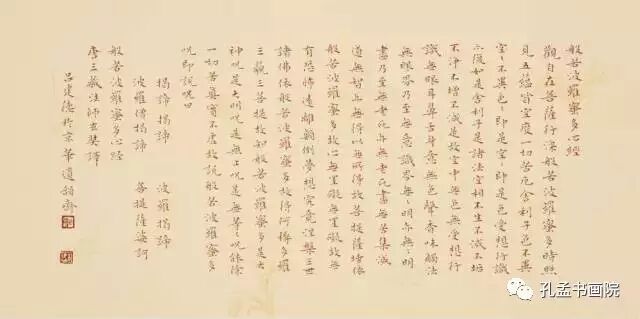 般若波羅蜜多心經
觀自在菩薩行深般若波羅蜜多時照
見五蘊皆空度一切苦厄舍利子色不異
空〻不異色〻即是空〻即是色受想行識
亦復如是舍利子是諸法空相不生不滅不垢
不淨不增不減是故空中無色無受想行
識無眼耳鼻舌身意無色聲香味觸法
無眼界乃至無意識界無〻明亦無〻明
盡乃至無老死亦無老死盡無苦集滅
道無智亦無得以無所得故菩提薩埵依
般若波羅蜜多故心無罣礙無罣礙故無
有恐怖遠離顛倒夢想究竟涅槃三世
諸佛依般若波羅蜜多故得阿耨多羅
三藐三菩提故知般若波羅蜜多是大
神咒是大明咒是無上咒是無等〻咒能除
一切苦真實不虛故說般若波羅蜜多
咒即說咒曰
揭諦揭諦 波羅揭諦
波羅僧揭諦 菩提薩婆訶
般若波羅蜜多心經
唐三藏法師玄奘譯
呂建德於京華道韻齋
孔孟书画院